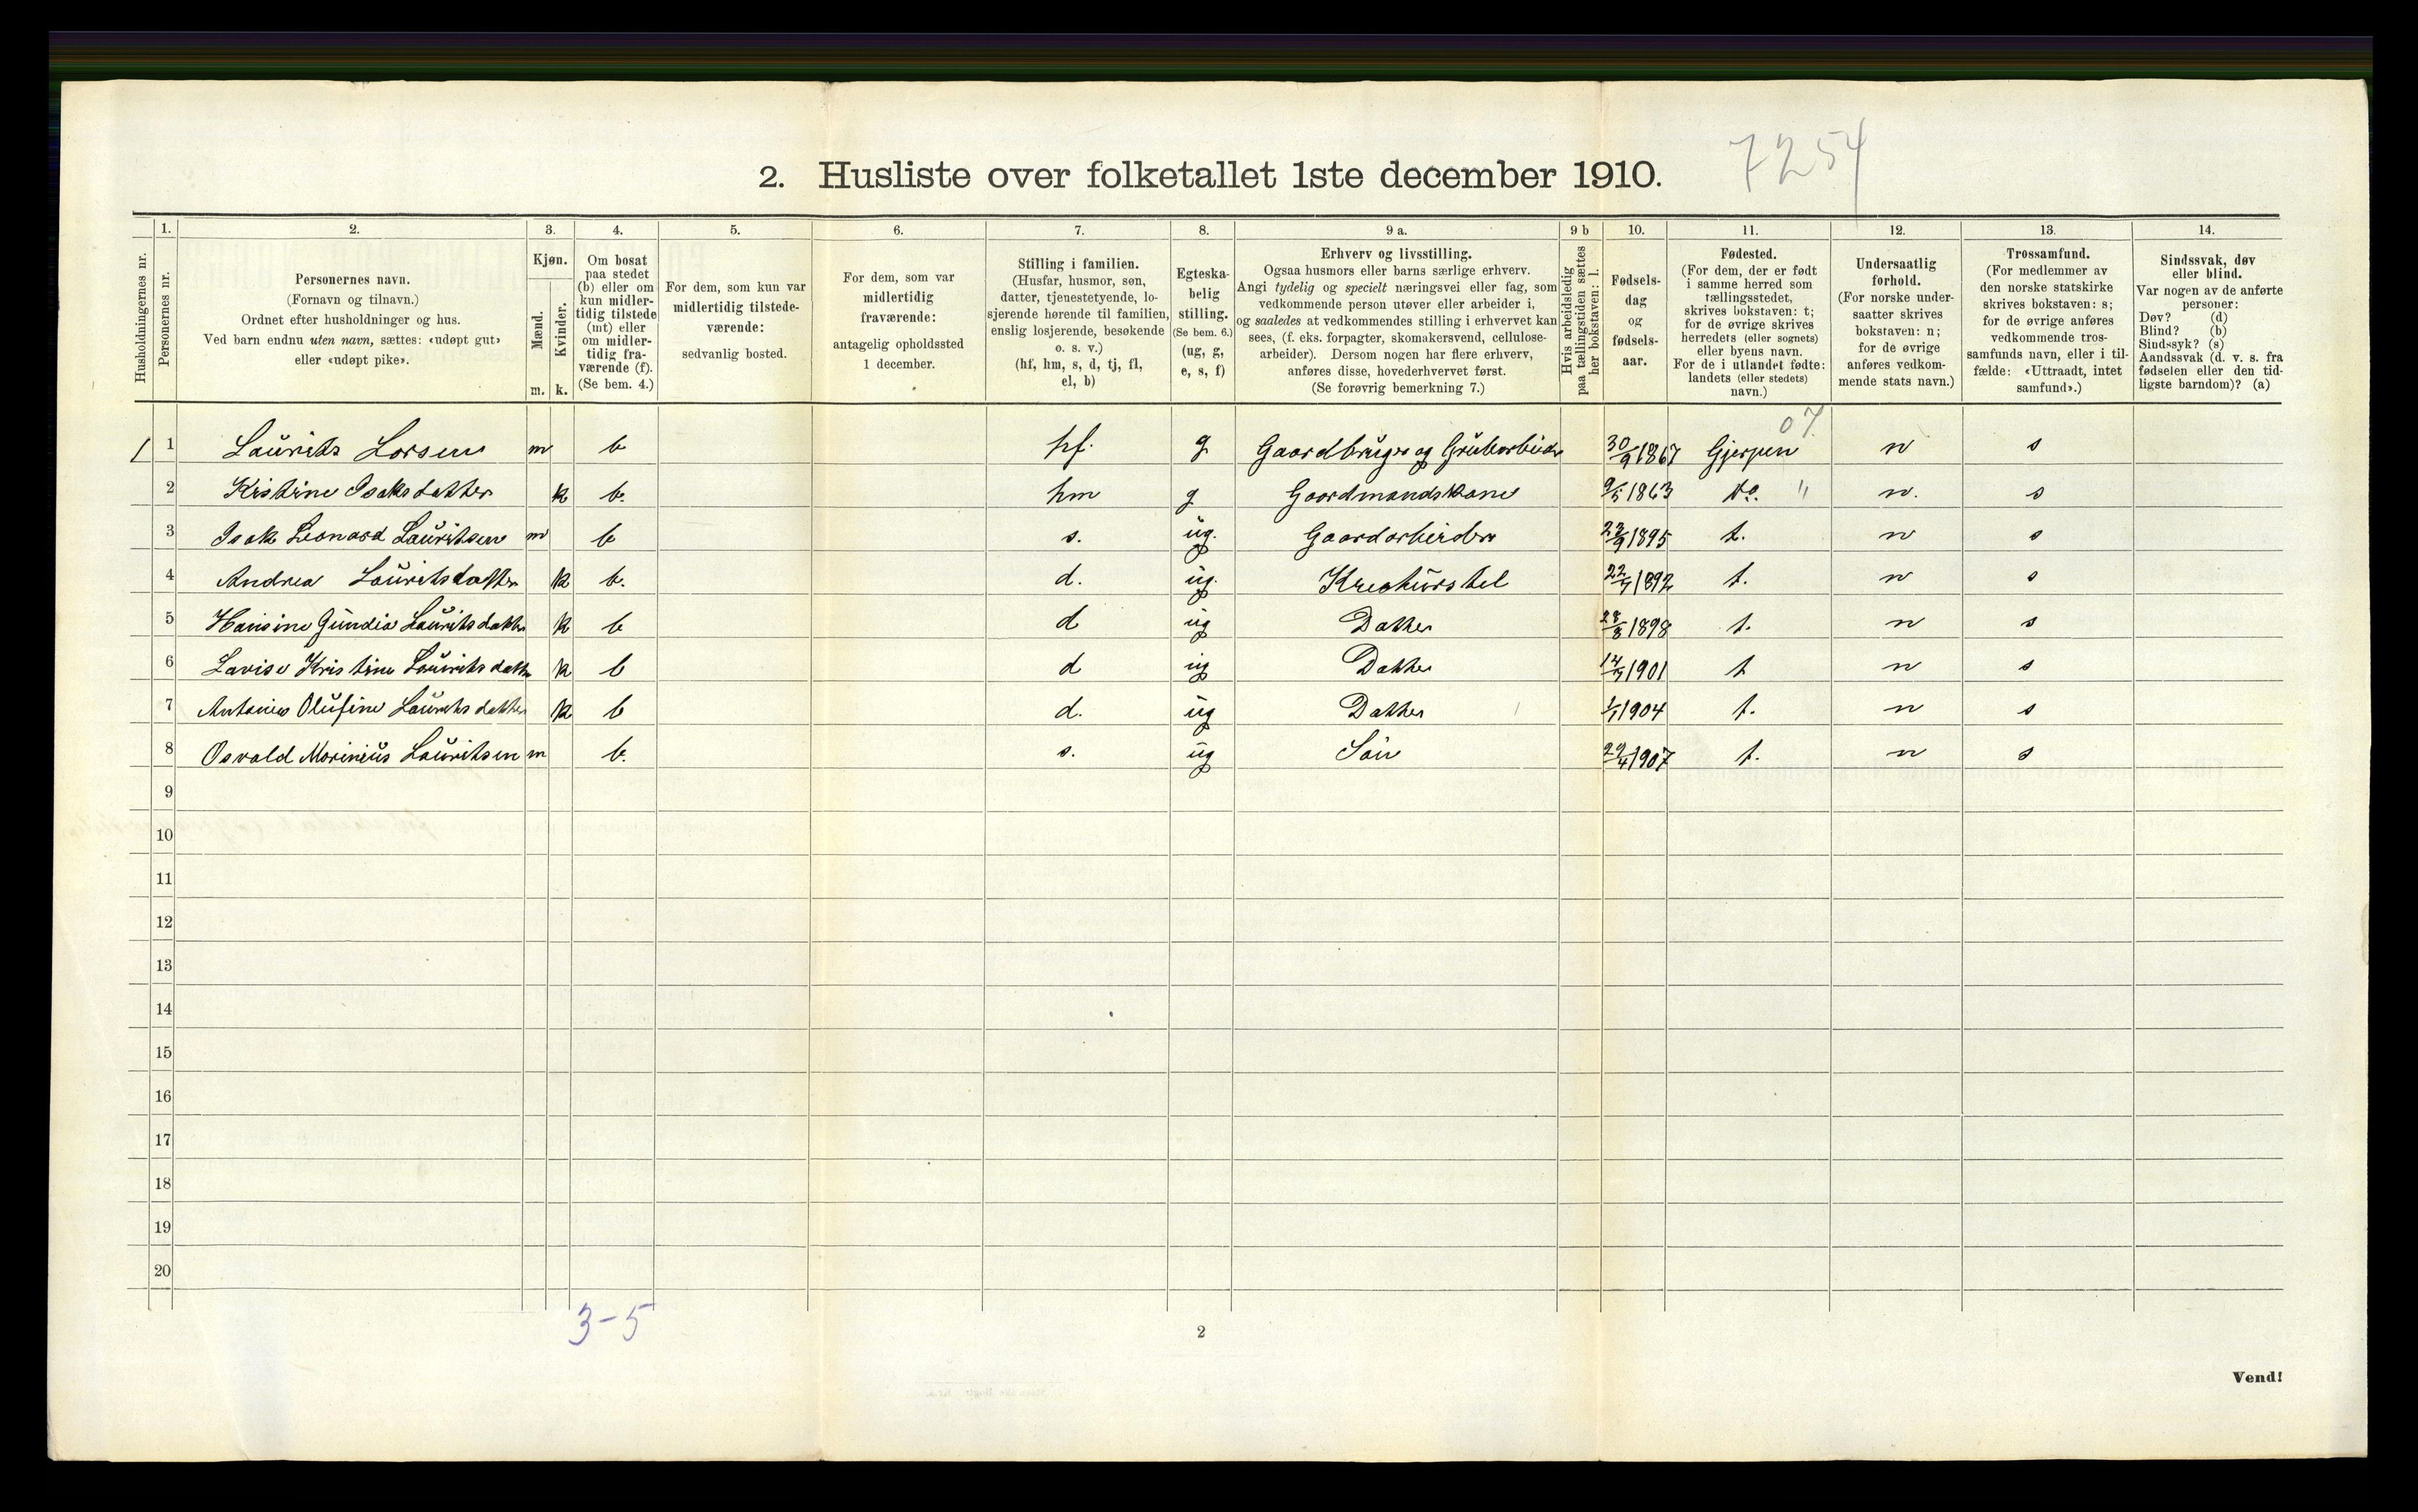 7254
2. Husliste over folketallet 1ste december 1910.
1. 2. 3. 4. 5. 6. 7. 8. 9 a. 9 b 10. 11. 12. 13. 14.
Husholdningernes nr.
Personernes nr.
Personernes navn.
(Fornavn og tilnavn.)
Ordnet efter husholdninger og hus.
Ved barn endnu uten navn, sættes: «udøpt gut»
eller «udøpt pike».
Kjøn.
Mænd.
Kvinder.
m. k.
Om bosat
paa stedet
(b) eller om
kun midler-
tidig tilstede
(mt) eller
om midler-
tidig fra-
værende (f).
(Se bem. 4.)
For dem, som kun var
midlertidig tilstede-
værende:
sedvanlig bosted.
For dem, som var
midlertidig
fraværende:
antagelig opholdssted
1 december.
Stilling i familien.
(Husfar, husmor, søn,
datter, tjenestetyende, lo-
sjerende hørende til familien,
enslig losjerende, besøkende
o. s. v.)
(hf, hm, s, d, tj, fl,
el, b)
Egteska-
belig
stilling.
(Se bem. 6.)
(ug, g,
e, s, f)
Erhverv og livsstilling.
Ogsaa husmors eller barns særlige erhverv.
Angi tydelig og specielt næringsvei eller fag, som
vedkommende person utøver eller arbeider i,
og saaledes at vedkommendes stilling i erhvervet kan
sees, (f. eks. forpagter, skomakersvend, cellulose-
arbeider). Dersom nogen har flere erhverv,
anføres disse, hovederhvervet først.
(Se forøvrig bemerkning 7.)
Hvis arbeidsledig
paa tællingstiden sættes
her bokstaven: l.
Fødsels-
dag
og
fødsels-
aar.
Fødested.
(For dem, der er født
i samme herred som
tællingsstedet,
skrives bokstaven: t;
for de øvrige skrives
herredets (eller sognets)
eller byens navn.
For de i utlandet fødte:
landets (eller stedets)
navn.)
Undersaatlig
forhold.
(For norske under-
saatter skrives
bokstaven: n;
for de øvrige
anføres vedkom-
mende stats navn.)
Trossamfund.
(For medlemmer av
den norske statskirke
skrives bokstaven: s;
for de øvrige anføres
vedkommende tros-
samfunds navn, eller i til-
fælde: «Uttraadt, intet
samfund».)
Sindssvak, døv
eller blind.
Var nogen av de anførte
personer:
Døv? (d)
Blind? (b)
Sindssyk? (s)
Aandssvak (d. v. s. fra
fødselen eller den tid-
ligste barndom)? (a)
07
1 1 Laurits Larsen m b hf. g Gaardbruger og Grubarbeider 30/9 1867 Gjerpen n s
2 Kistine Isaksdatter k b. hm g Gaardmandskone 9/5 1863 do. " n. s
3 Isak Leonard Lauritsen m b s. ug. Gaardarbeider 23/9 1895 t. n s
4 Andrea Lauritsdatter k b. d. ug. Kreaturstel 1892 t. n s
5 Hansine Gundia Lauritsdatter k b d ug Datter 28/8 1898 t. n s
6 Lovise Kristine Lauritsdatter k b d ug Datter 1901 t n s
7 Antonie Olufine Lauritsdatter k b d. ug Datter 1904 t. n s
8 Osvald Marinius Lauritsen m b. s. ug Sön 29/4 1907 t. n s
9
10
11
12
13
14
15
16
17
18
19
20
3-5
2
Vend!